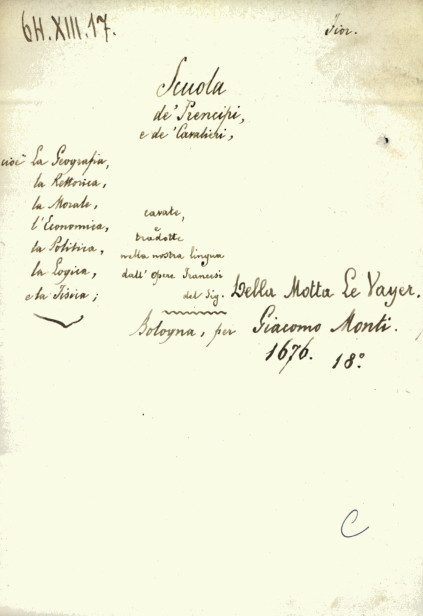 6H.XIII.17.
Fior.
Scuola
de' Prencipi,
e de' Cavalieri,
cioè La Geografia,
la Rettorica,
la Morale,
l'Economica,
la Politica,
la Logica,
e la Fisica;
cavate,
e
tradotte
nella nostra lingua
dall' Opere Francesi
del Sig. Della Motta Le Vayer.
Bologna, per Giacomo Monti.
1676. 18°.
C